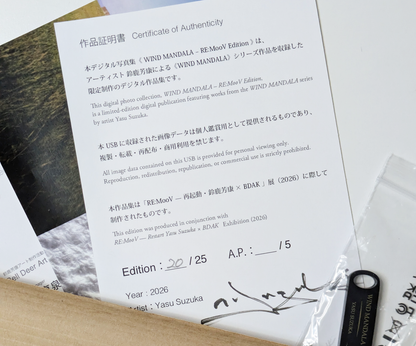 作品証明書 Certificate of Authenticity
本デジタル写真集《 WIND MANDALA – RE:MooV Edition 》は、
アーティスト 鈴鹿芳康による《WIND MANDALA》シリーズ作品を収録した
限定制作のデジタル作品集です。
This digital photo collection, WIND MANDALA – RE:MooV Edition,
is a limited-edition digital publication featuring works from the WIND MANDALA series
by artist Yasu Suzuka.
本 USB に収録された画像データは個人鑑賞用として提供されるものであり、
複製・転載・再配布・商用利用を禁じます。
All image data contained on this USB is provided for personal viewing only.
Reproduction, redistribution, republication, or commercial use is strictly prohibited.
本作品集は「RE:MooV — 再起動・鈴鹿芳康 × BDAK 」展（2026）に際して
制作されたものです。
This edition was produced in conjunction with
RE:MooV — Reboot Yasu Suzuka × BDAK Exhibition (2026)
Edition : 20 / 25 A.P. : / 5
Year : 2026
Artist : Yasu Suzuka
ell Deer Art
WIND MANDALA